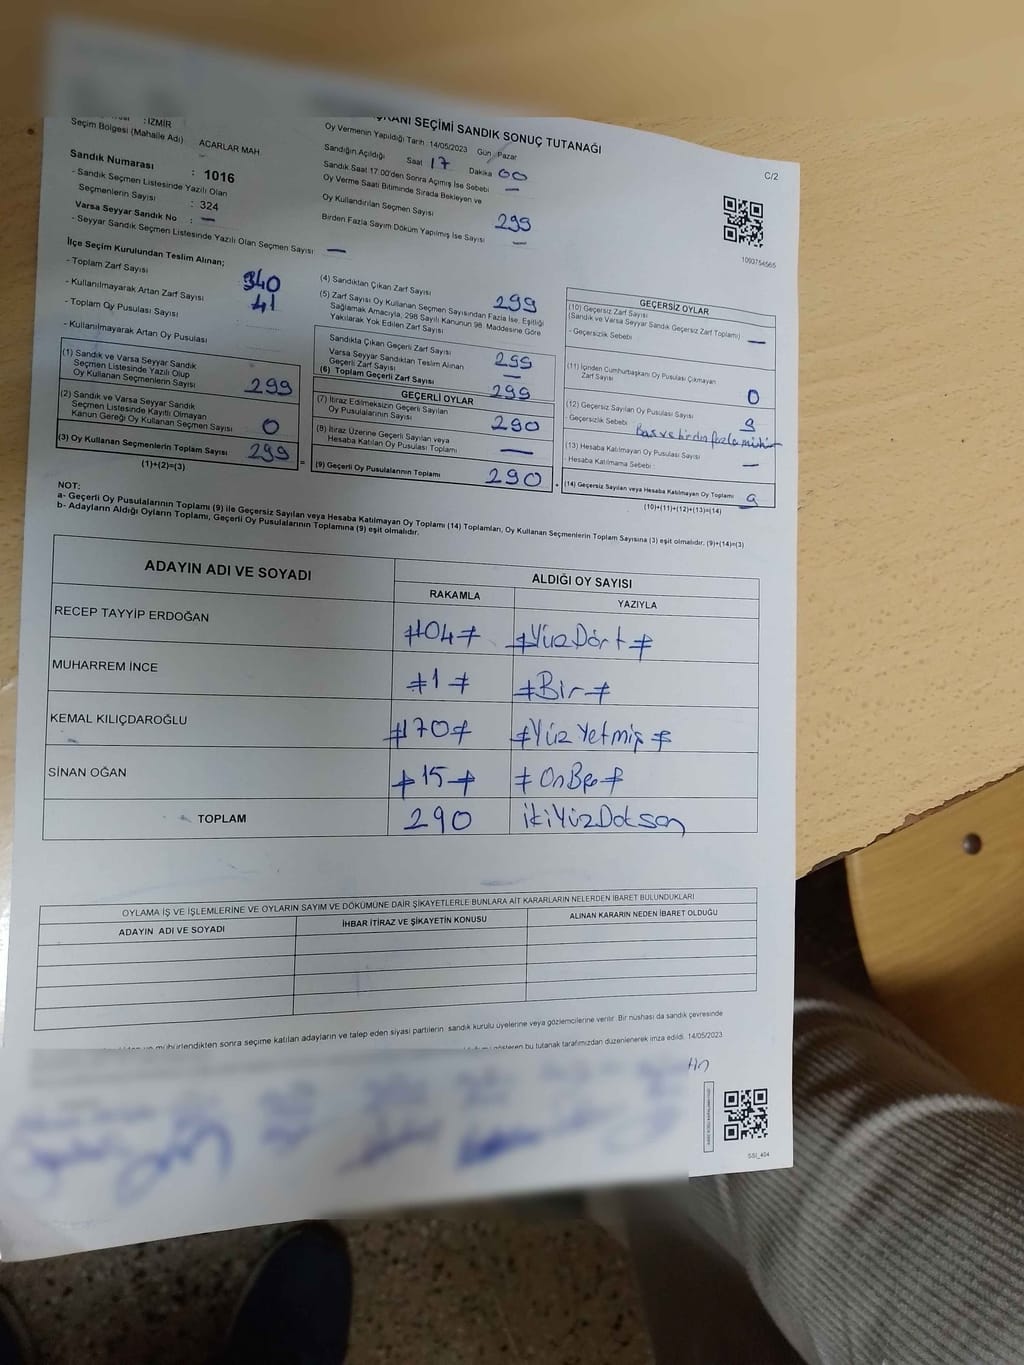 KANI SEÇİMİ SANDIK SONUÇ TUTANAĞI
C/2
: İZMİR
Seçim Bölgesi (Mahalle Adı) ACARLAR MAH.
Oy Vermenin Yapıldığı Tarih :14/05/2023 Gün : Pazar
Sandığın Açıldığı Saat 17 Dakika 00
Sandık Saat 17.00'den Sonra Açılmış İse Sebebi —
Oy Verme Saati Bitiminde Sırada Bekleyen ve
Oy Kullandırılan Seçmen Sayısı 299
Birden Fazla Sayım Döküm Yapılmış İse Sayısı —
Sandık Numarası : 1016
- Sandık Seçmen Listesinde Yazılı Olan
Seçmenlerin Sayısı : 324
Varsa Seyyar Sandık No : —
- Seyyar Sandık Seçmen Listesinde Yazılı Olan Seçmen Sayısı —
1093754565
İlçe Seçim Kurulundan Teslim Alınan;
- Toplam Zarf Sayısı 340
- Kullanılmayarak Artan Zarf Sayısı 41
- Toplam Oy Pusulası Sayısı
- Kullanılmayarak Artan Oy Pusulası
(1) Sandık ve Varsa Seyyar Sandık
Seçmen Listesinde Yazılı Olup
Oy Kullanan Seçmenlerin Sayısı 299
(2) Sandık ve Varsa Seyyar Sandık
Seçmen Listesinde Kayıtlı Olmayan
Kanun Gereği Oy Kullanan Seçmen Sayısı 0
(3) Oy Kullanan Seçmenlerin Toplam Sayısı 299
(1)+(2)=(3)
(4) Sandıktan Çıkan Zarf Sayısı 299
(5) Zarf Sayısı Oy Kullanan Seçmen Sayısından Fazla İse, Eşitliği
Sağlamak Amacıyla, 298 Sayılı Kanunun 98. Maddesine Göre
Yakılarak Yok Edilen Zarf Sayısı
Sandıkla Çıkan Geçerli Zarf Sayısı 299
Varsa Seyyar Sandıktan Teslim Alınan
Geçerli Zarf Sayısı —
(6) Toplam Geçerli Zarf Sayısı 299
GEÇERLİ OYLAR
(7) İtiraz Edilmeksizin Geçerli Sayılan
Oy Pusulalarının Sayısı 290
(8) İtiraz Üzerine Geçerli Sayılan veya
Hesaba Katılan Oy Pusulası Toplamı —
(9) Geçerli Oy Pusulalarının Toplamı 290
GEÇERSİZ OYLAR
(10) Geçersiz Zarf Sayısı
(Sandık ve Varsa Seyyar Sandık Geçersiz Zarf Toplamı) —
- Geçersizlik Sebebi
(11) İçinden Cumhurbaşkanı Oy Pusulası Çıkmayan
Zarf Sayısı 0
(12) Geçersiz Sayılan Oy Pusulası Sayısı 9
Geçersizlik Sebebi
(13) Hesaba Katılmayan Oy Pusulası Sayısı —
Hesaba Katılmama Sebebi :
(14) Geçersiz Sayılan veya Hesaba Katılmayan Oy Toplamı 9
(10)+(11)+(12)+(13)=(14)
NOT:
a- Geçerli Oy Pusulalarının Toplamı (9) ile Geçersiz Sayılan veya Hesaba Katılmayan Oy Toplamı (14) Toplamları, Oy Kullanan Seçmenlerin Toplam Sayısına (3) eşit olmalıdır. (9)+(14)=(3)
b- Adayların Aldığı Oyların Toplamı, Geçerli Oy Pusulalarının Toplamına (9) eşit olmalıdır.
ADAYIN ADI VE SOYADI ALDIĞI OY SAYISI
RAKAMLA YAZIYLA
RECEP TAYYİP ERDOĞAN #104# #YüzDört#
MUHARREM İNCE #1# #Bir#
KEMAL KILIÇDAROĞLU #170# #Yüz Yetmiş#
SİNAN OĞAN #15# #OnBeş#
TOPLAM 290 ikiYüzDoksan
OYLAMA İŞ VE İŞLEMLERİNE VE OYLARIN SAYIM VE DÖKÜMÜNE DAİR ŞİKAYETLERLE BUNLARA AİT KARARLARIN NELERDEN İBARET BULUNDUKLARI
ADAYIN ADI VE SOYADI İHBAR İTİRAZ VE ŞİKAYETİN KONUSU ALINAN KARARIN NEDEN İBARET OLDUĞU
mühürlendikten sonra seçime katılan adayların ve talep eden siyasi partilerin sandık kurulu üyelerine veya gözlemcilerine verilir. Bir nüshası da sandık çevresinde
gösteren bu tutanak tarafımızdan düzenlenerek imza edildi. 14/05/2023
SSI_404